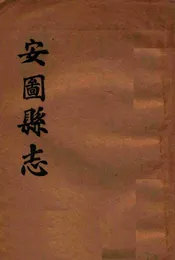 安圖縣志